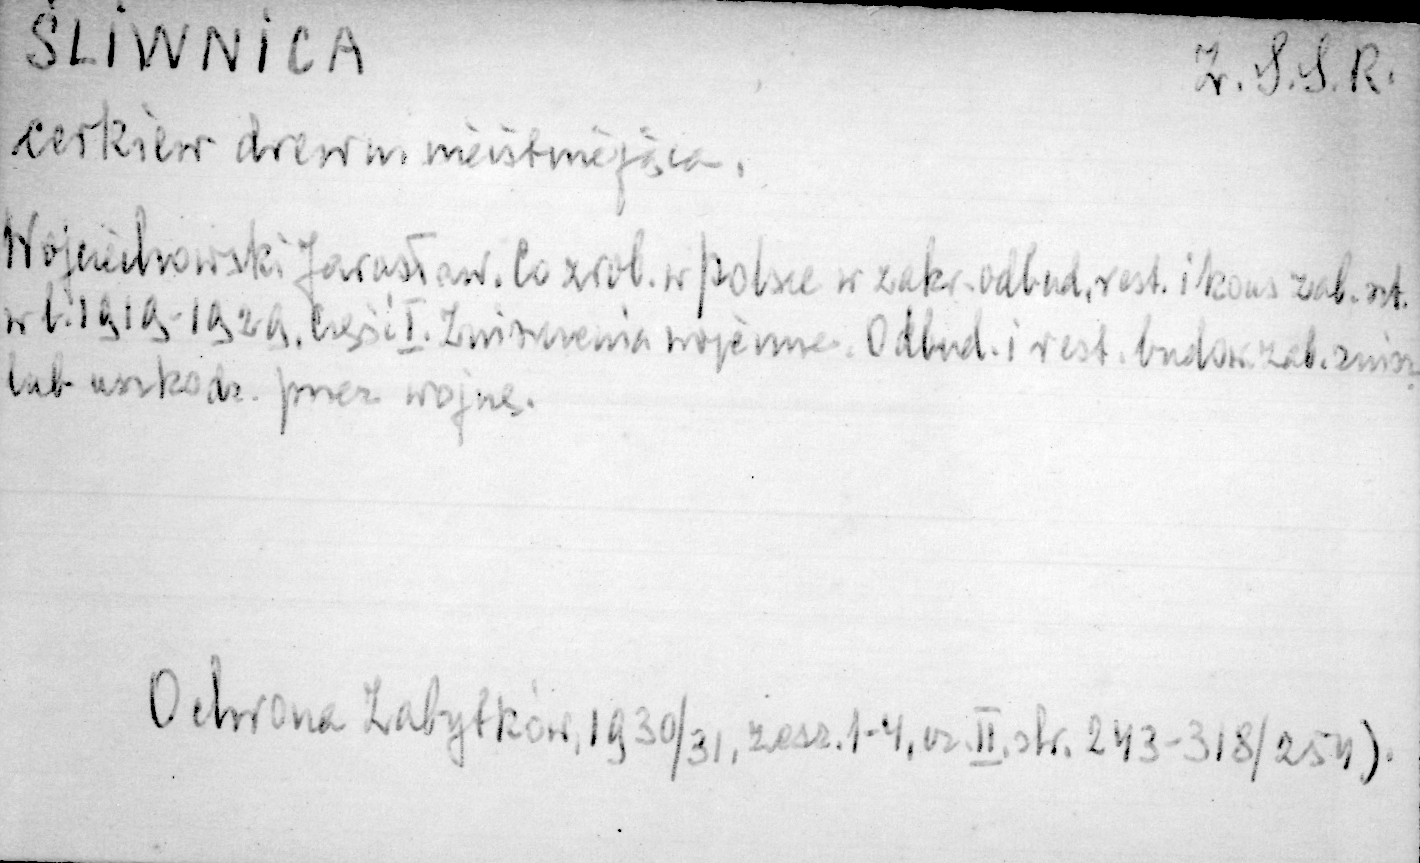 ŚLIWNICA
Z.S.S.R.
cerkiew drewn. nieistniejąca.
Wojciechowski Jarosław. Co zrob. w Polsce w zakr. odbud., rest. i kons zab. szt.
w l. 1919-1929. Część I. Zniszczenia wojenne. Odbud. i rest. budow. zab. znisz.
lub uszkodz. przez wojnę.
Ochrona Zabytków, 1930/31, zesz. 1-4, cz. II, str. 243-318/254).